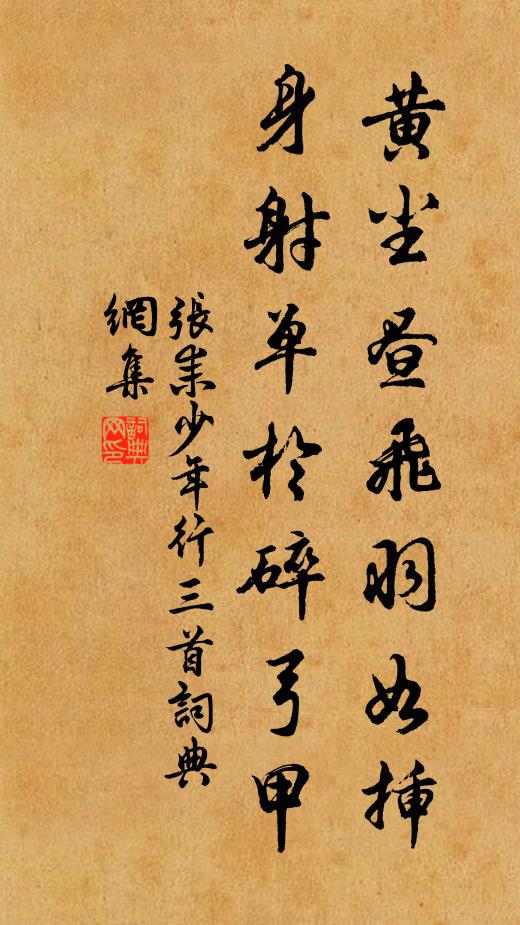 黄尘昼飛羽如插
身射单於碎弓甲
張耒少年行三首詞典
網集
詞典
网印